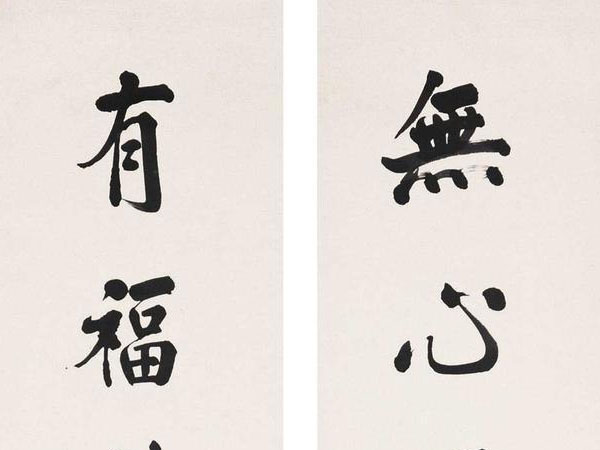 無心
有福